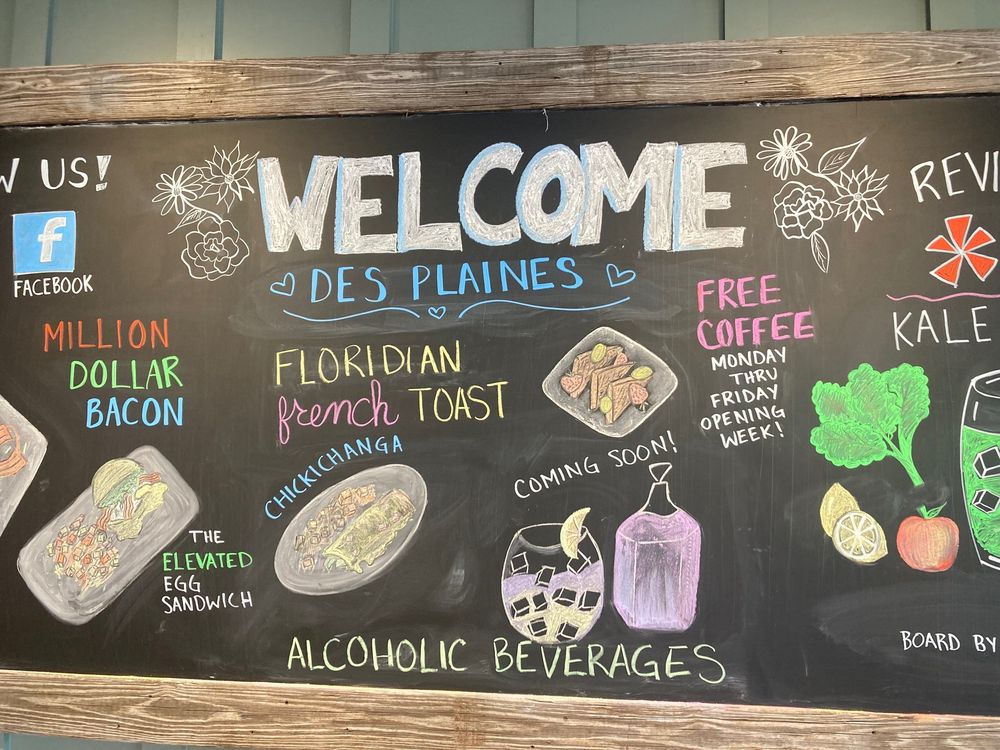 W US!
f
FACEBOOK
WELCOME
DES PLAINES
MILLION
DOLLAR
BACON
FLORIDIAN
french TOAST
FREE
COFFEE
MONDAY
THRU
FRIDAY
OPENING
WEEK!
REVI
KALE
CHICKICHANGA
THE
ELEVATED
EGG
SANDWICH
COMING SOON!
ALCOHOLIC BEVERAGES
BOARD BY